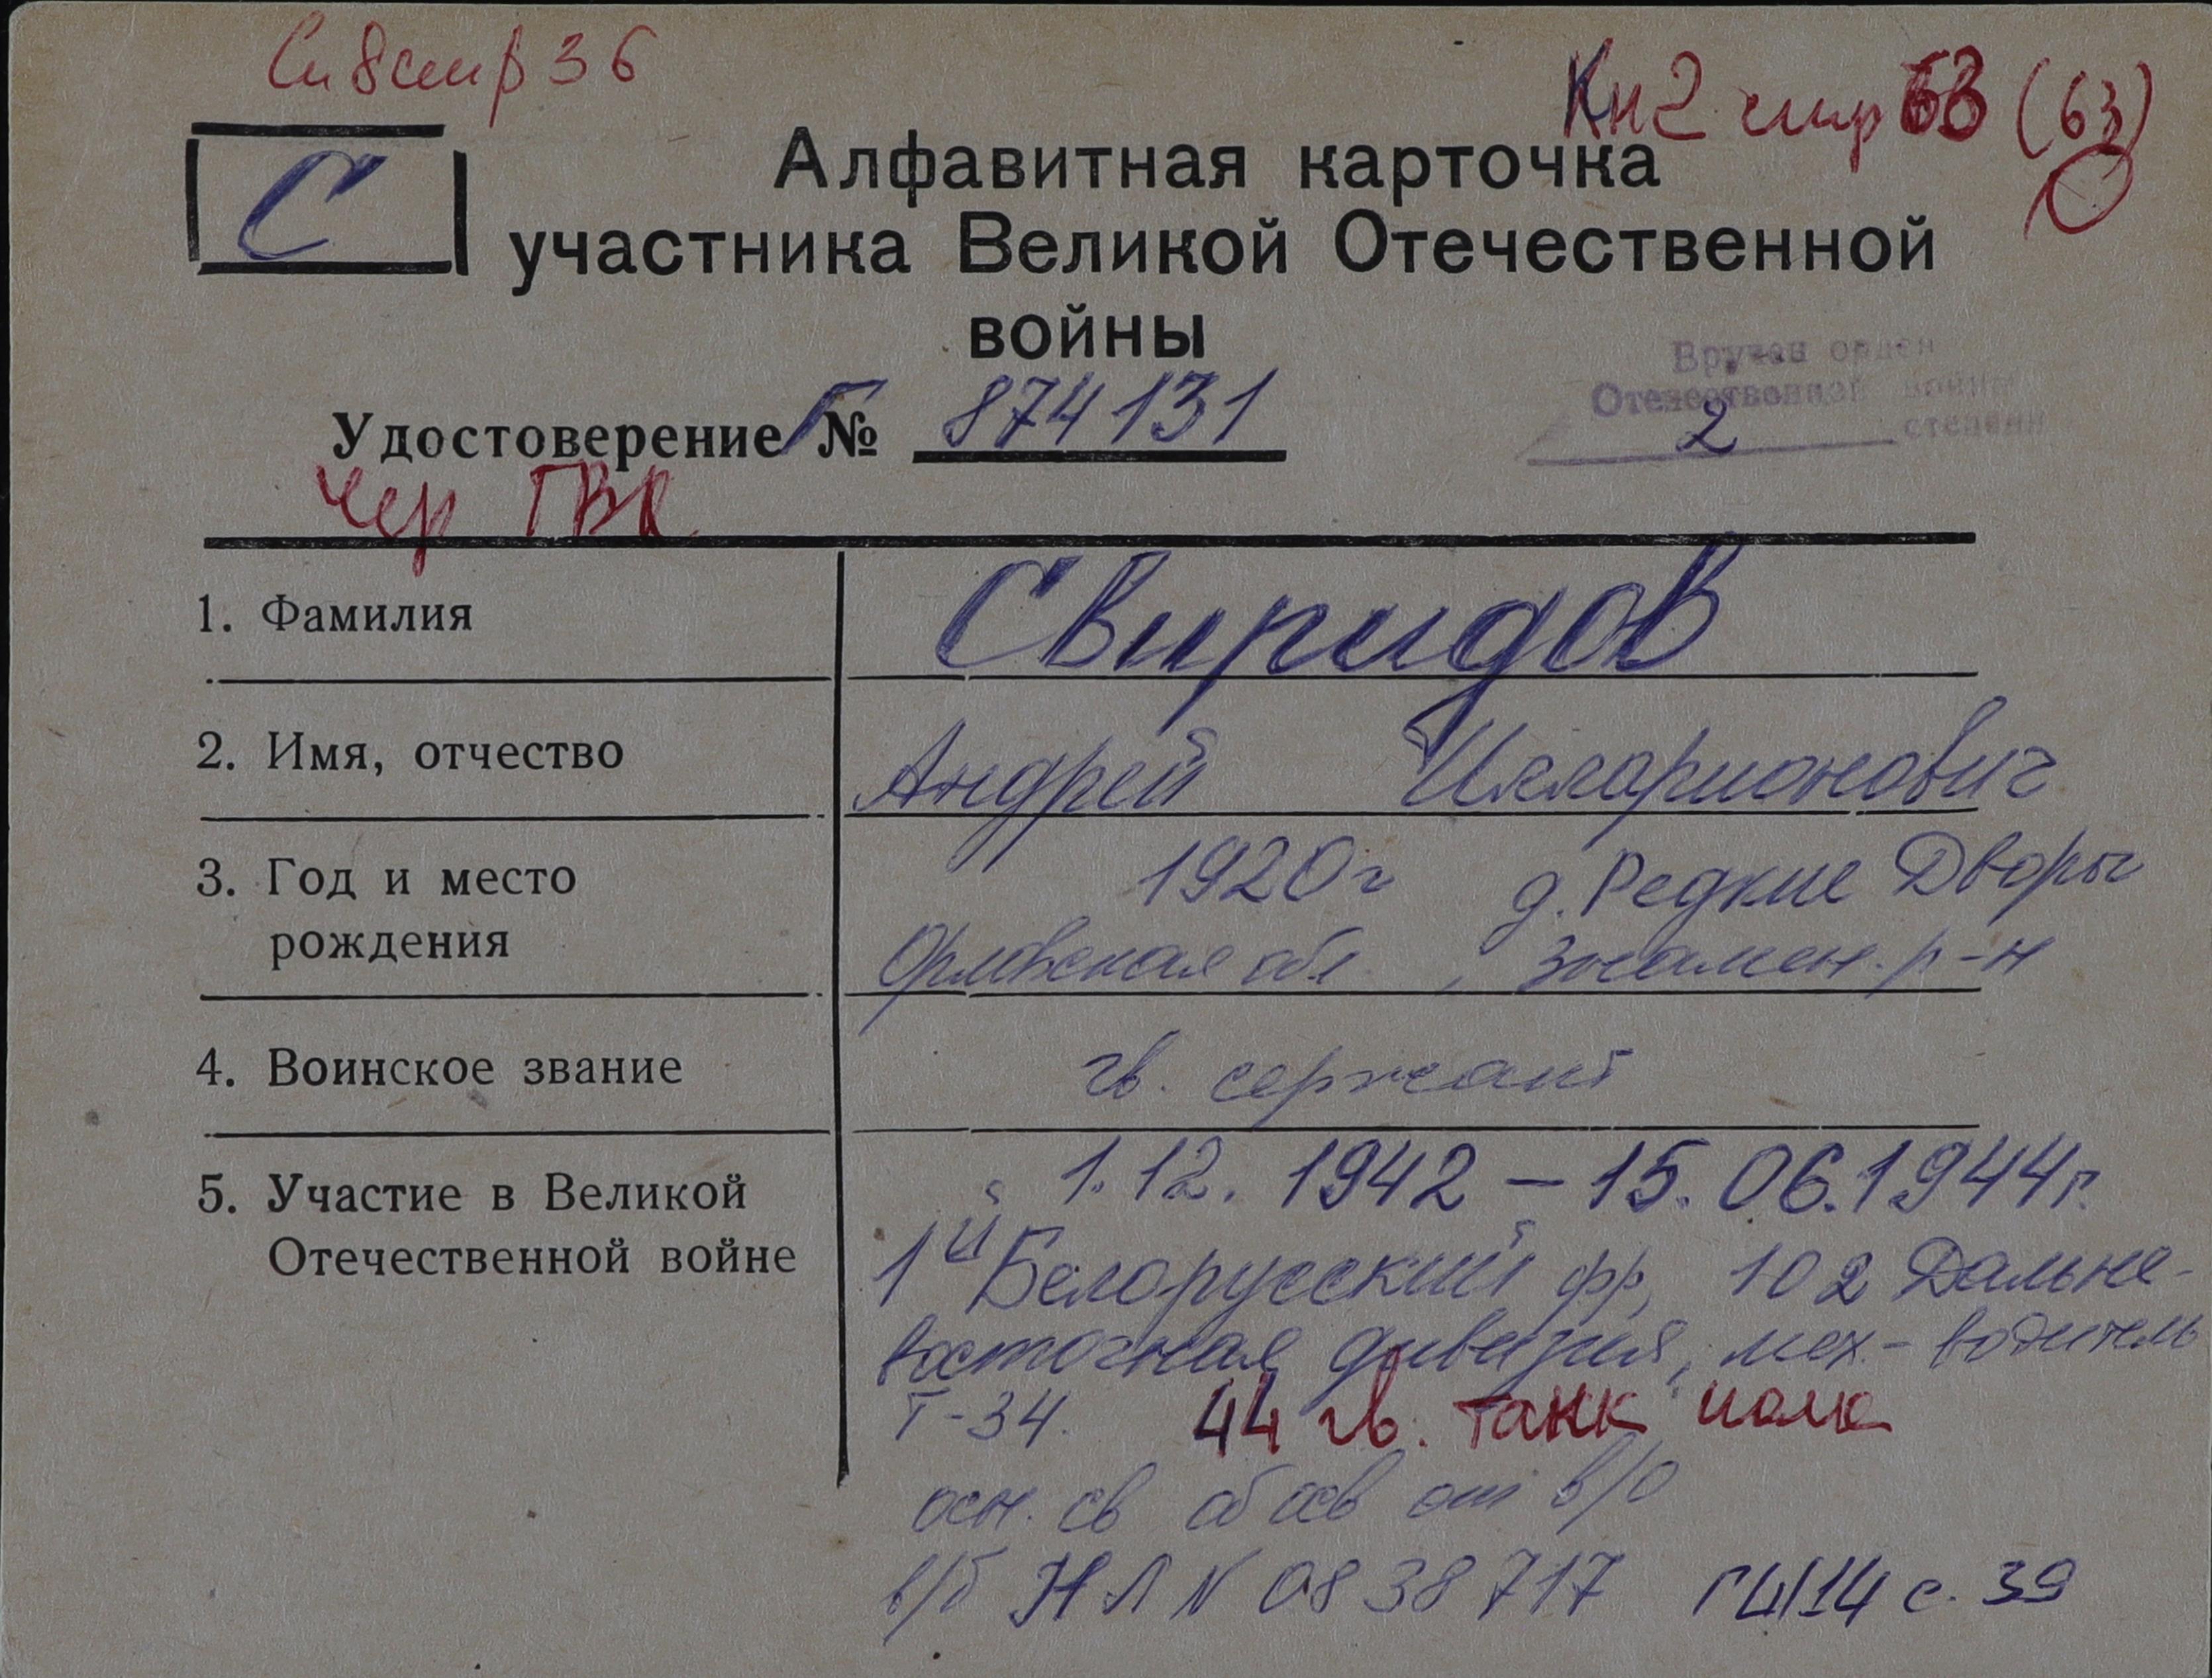 Сп 8 стр 36
Кн 2 стр 63 (63)
С
Алфавитная карточка
участника Великой Отечественной
войны
Вручен орден
Отечественной войны
2 степени
Удостоверение Г № 874131
Чер ГВК
1. Фамилия Свиридов
2. Имя, отчество Андрей Илларионович
3. Год и место 1920г д. Редкие Дворы
рождения Орловская обл., Знамен. р-н
4. Воинское звание гв. сержант
5. Участие в Великой с 1.12.1942 – 15.06.1944г.
Отечественной войне 1й Белорусский фр, 102 Дальне-
восточная дивизия, мех.-водитель
Т-34. 44 гв. танк полк
осн. св об осв от в/о
в/б НЛ N 0838717 ГШ/14 с. 39